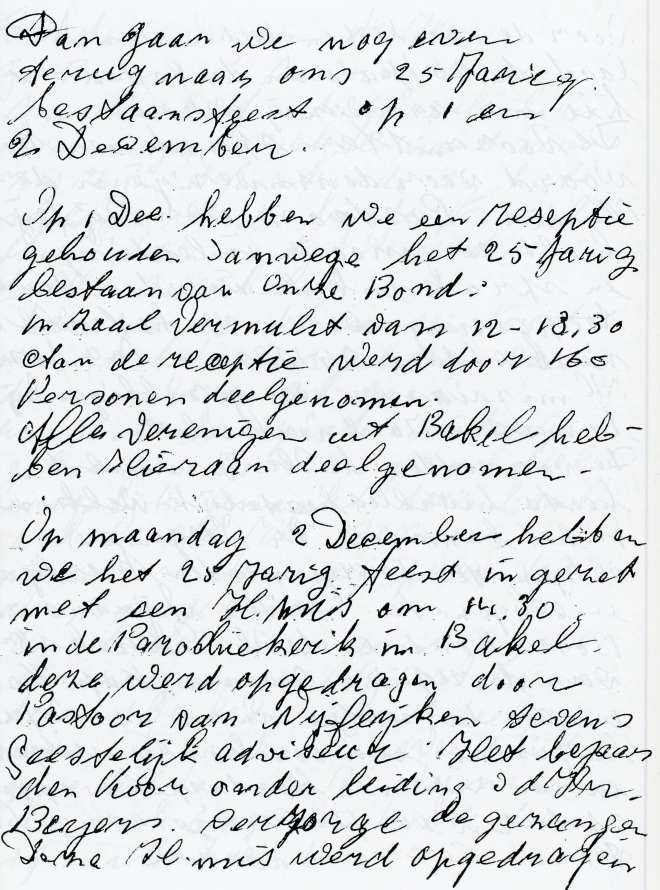 Dan gaan we nog even
terug naar ons 25 Jarig.
bestaansfeest op 1 en
2 December.
Op 1 Dec. hebben we een reseptie
gehouden vanwege het 25 Jarig
bestaan van onze Bond.
in zaal Vermulst van 12-13,30
Aan de receptie werd door 160
Personen deelgenomen.
Alle verenigen uit Bakel heb-
ben Hieraan deelgenomen.
Op maandag 2 December hebben
we het 25 Jarig feest ingezet
met een H.mis om 14.30.
in de Parochiekerk in Bakel.
deze werd opgedragen door
Pastoor van Nijfeijken tevens
Geestelijk adviseur. Het bejaar
den Koor onder leiding v d Hr.
Beyers. verzorge de gezangen
H.mis werd opgedragen